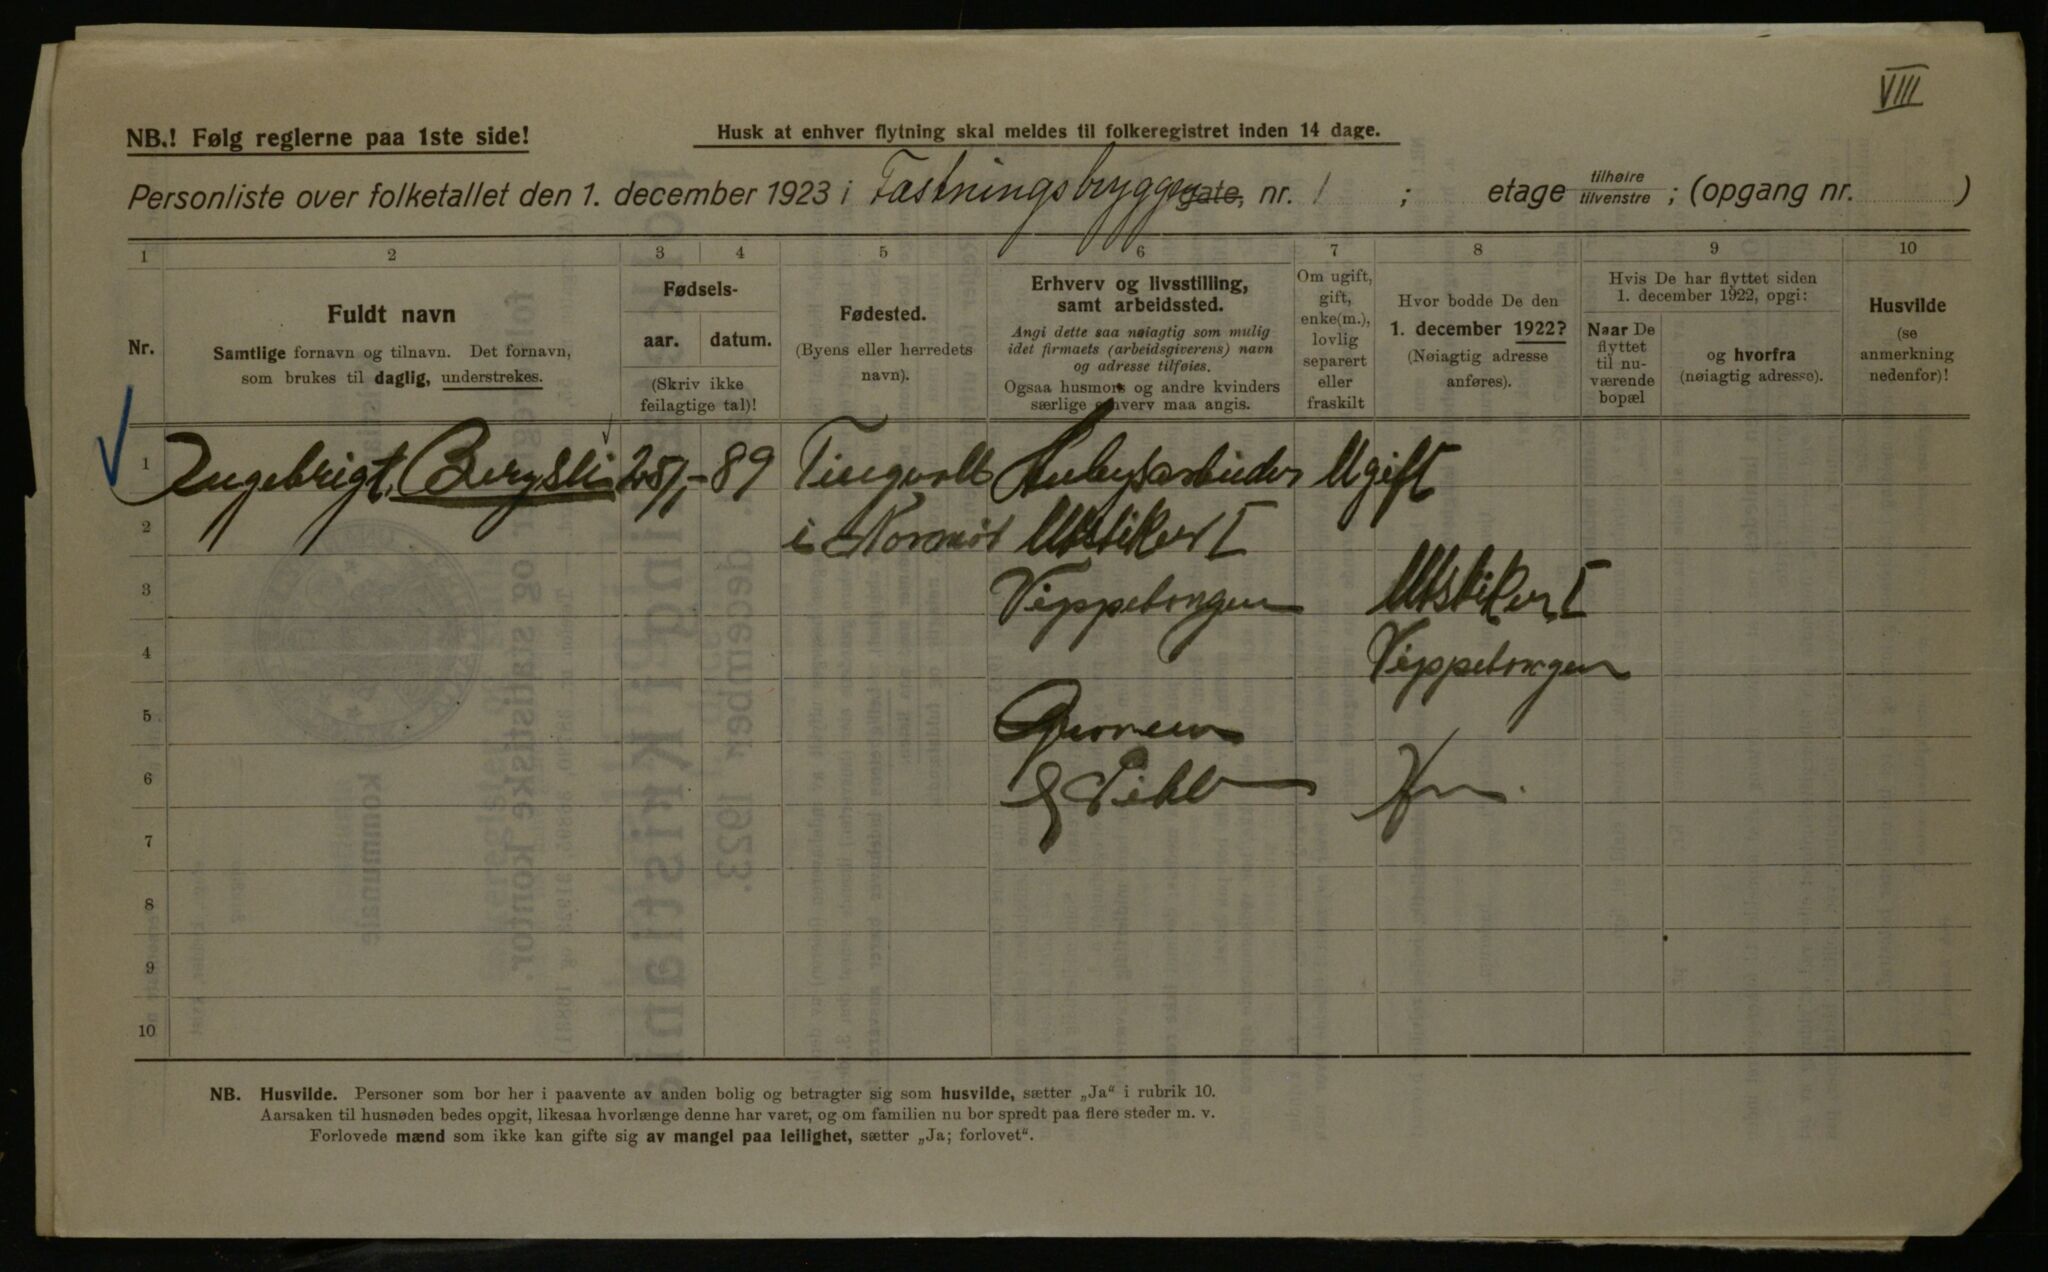 VIII
NB.! Følg reglerne paa 1ste side!
Husk at enhver flytning skal meldes til folkeregistret inden 14 dage.
Personliste over folketallet den 1. december 1923 i Fæstningsbrygge gate, nr. 1 ; etage tilhøire tilvenstre ; (opgang nr. )
1 2 3 4 5 6 7 8 9 10
Nr.
Fuldt navn
Samtlige fornavn og tilnavn. Det fornavn,
som brukes til daglig, understrekes.
Fødsels-
aar. datum.
(Skriv ikke
feilagtige tal)!
Fødested.
(Byens eller herredets
navn).
Erhverv og livsstilling,
samt arbeidssted.
Angi dette saa nøiagtig som mulig
idet firmaets (arbeidsgiverens) navn
og adresse tilføies.
Ogsaa husmors og andre kvinders
særlige erhverv maa angis.
Om ugift,
gift,
enke(m.),
lovlig
separert
eller
fraskilt
Hvor bodde De den
1. december 1922?
(Nøiagtig adresse
anføres).
Hvis De har flyttet siden
1. december 1922, opgi:
Naar De
flyttet
til nu-
værende
bopæl
og hvorfra
(nøiagtig adresse).
Husvilde
(se
anmerkning
nedenfor)!
1 Ingebrigt Bergsli 25/1-89 Tingvoll Ugift
2 i Normør Utstiker I
3 Vippetangen Utstiker I
4 Vippetangen
5
6 Pihl
7
8
9
10
NB. Husvilde. Personer som bor her i paavente av anden bolig og betragter sig som husvilde, sætter „Ja“ i rubrik 10.
Aarsaken til husnøden bedes opgit, likesaa hvorlænge denne har varet, og om familien nu bor spredt paa flere steder m. v.
Forlovede mænd som ikke kan gifte sig av mangel paa leilighet, sætter „Ja; forlovet“.